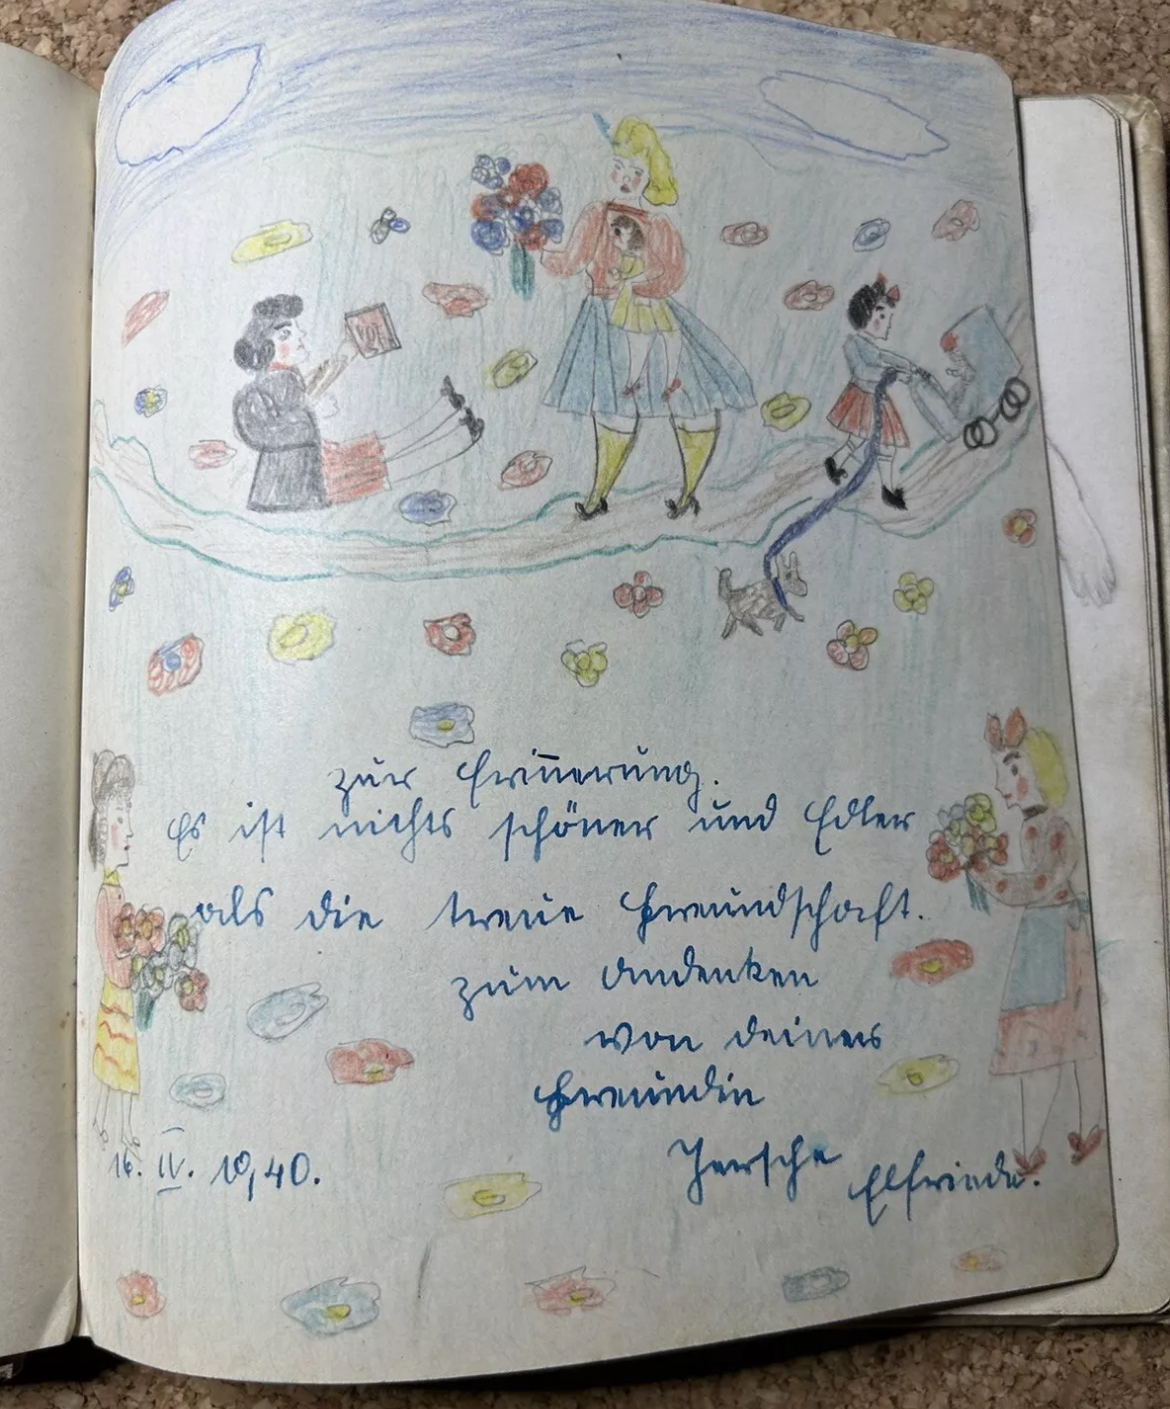 zur Erinnerung.
Es ist nichts schöner und Edler
als die treue Freundschaft.
zum Andenken
von deiner
Freundin
Elfriede.
16. IV. 19,40.